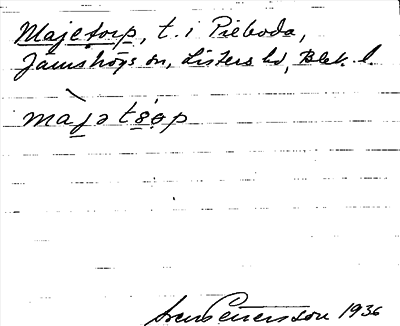 Majetorp, t. i Pieboda,
Jämshögs sn, Listers hd, Blek. l.
majət
Sven Petersson 1936